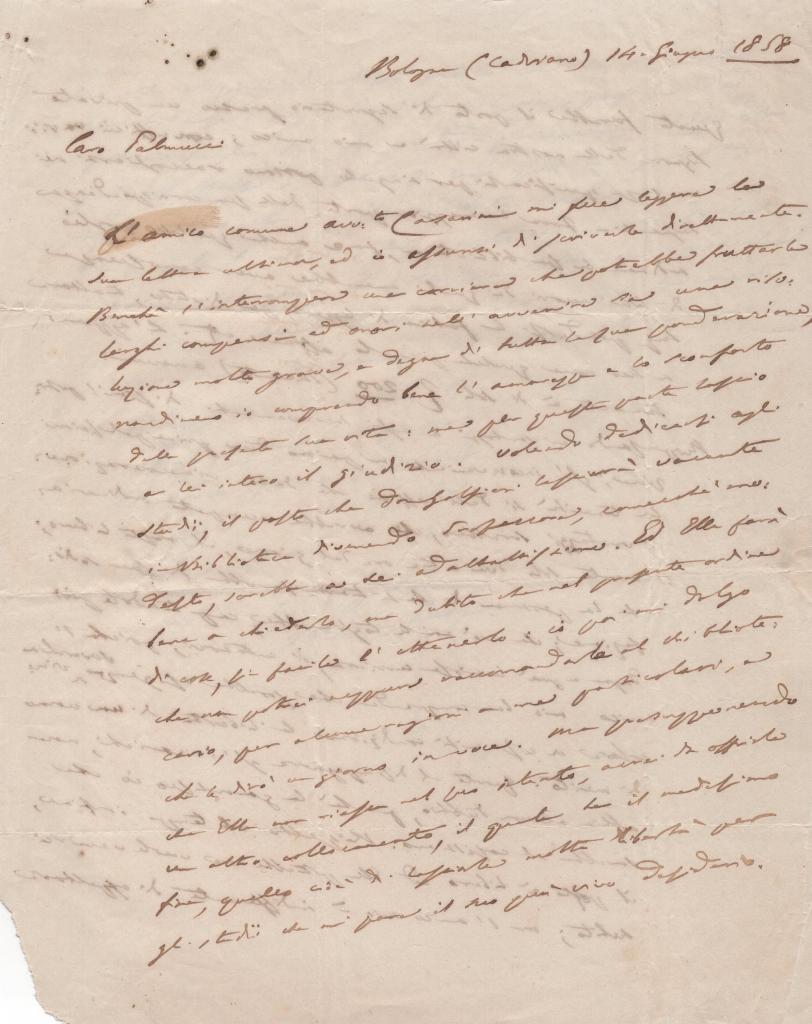 Bologna (Cadriano) 14 Giugno 1858
Caro Palmucci
L'amico comune avv.to Casarini mi fece leggere la
sua lettera ultima, ed io assunsi di scriverle direttamente.
Benchè l'interrompere una carriera che potrebbe fruttarle
larghi compensi, ed onori nell'avvenire sia una riso-
luzione molto grave, e degna di tutta la sua ponderazione,
nondimeno io comprendo bene l'amarezza e lo sconforto
della presente sua vita: ma per questa parte lascio
a lei intero il giudizio. Volendo dedicarsi agli
studii, il posto che don Golfieri lasserà vacante
in Biblioteca divenendo Professore, comecchè mo-
desto, sarebbe a lei adattatissimo. Ed Ella farà
bene a chiederlo, ma dubito che nel presente ordine
di cose, sia facile l'ottenerlo: io poi mi dolgo
che non potrei neppure raccomandarla al bibliote-
cario, per alcune ragioni a me particolari, e
che le dirò un giorno in voce. Ma presupponendo
che Ella non riesca nel suo intento, avrei da offrirle
un altro collocamento, il quale ha il medesimo
fine, quello cioè di lasciarle molta libertà per
gli studii che mi pare il suo più vivo desiderio.